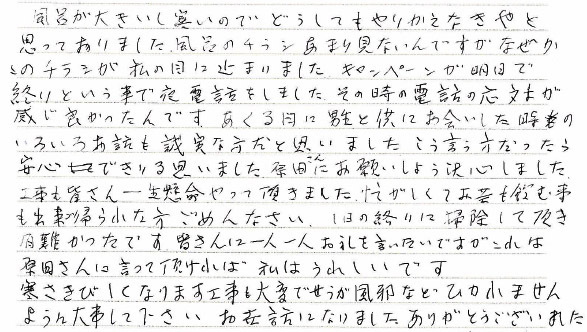 風呂が大きいし寒いのでどうしてもやりかえなきゃと
思っておりました。風呂のチラシあまり見ないんですがなぜか
このチラシが私の目に止まりました。キャンペーンが明日で
終りという事で夜電話をしました。その時の電話の応文が
感じ良かったんです あくる日に男性と供にお会いした時
いろいろお話も誠実な方だと思いました こう言う方なったら
安心できる思いました。原田さんにお願いしよう決心しました。
工事も皆さん一生懸命やって頂きました。忙がしくてお茶も飲む事
も出来ず帰られた方ごめんなさい、1日の終りに掃除して頂き
有難かったです 皆さんに一人一人お礼を言いたいですがこれは
原田さんに言って頂ければ私はうれしいです
寒さきびしくなります工事も大変でせうが風邪などひかれません
ように大事して下さい お世話になりました ありがとうございました